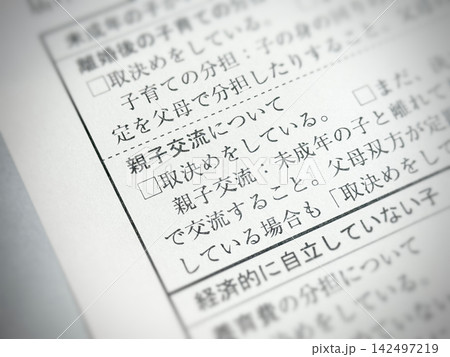 未成年の子が
離婚後の子育ての分
□取決めをしている。
子育ての分担：子の身の回り
定を父母で分担したりすること。父
親子交流について
□取決めをしている。 □まだ、決
親子交流：未成年の子と離れて
で交流すること。父母双方が定
している場合も「取決めをして
経済的に自立していない子
養育費の分担について
取決めをしている。
PIXTA
142497219